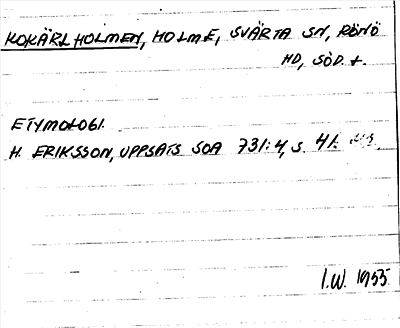 KOKÄRLHOLMEN, HOLME, SVÄRTA SN, RÖNÖ
HD, SÖD. L.
ETYMOLOGI.
H. ERIKSSON, UPPSATS SOA 731:4, S. 41.
I.W. 1955